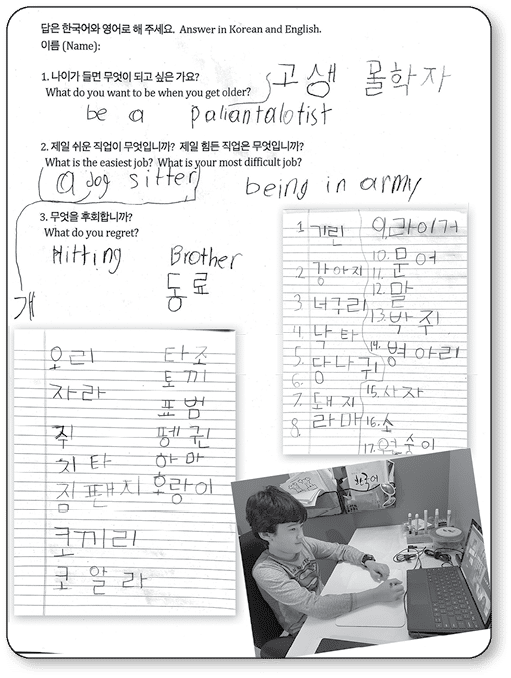 답은 한국어와 영어로 해 주세요. Answer in Korean and English.
이름 (Name):
1. 나이가 들면 무엇이 되고 싶은 가요?
What do you want to be when you get older?
고생 몰학자
be a paliantalotist
2. 제일 쉬운 직업이 무엇입니까? 제일 힘든 직업은 무엇입니까?
What is the easiest job? What is your most difficult job?
a dog sitter
being in army
3. 무엇을 후회합니까?
What do you regret?
Hitting Brother
동료
개
1 기린
2 강아지
3 너구리
4. 낙타
5. 당나귀
6.
7. 돼지
8. 라마
9. 라이거
10. 문어
11.
12. 말
13. 박쥐
14. 병아리
15. 사자
16. 소
17. 원숭이
오리
자라
쥐
치타
침팬치
코끼리
코알라
타조
토끼
표범
펭귄
하마
호랑이
한국어